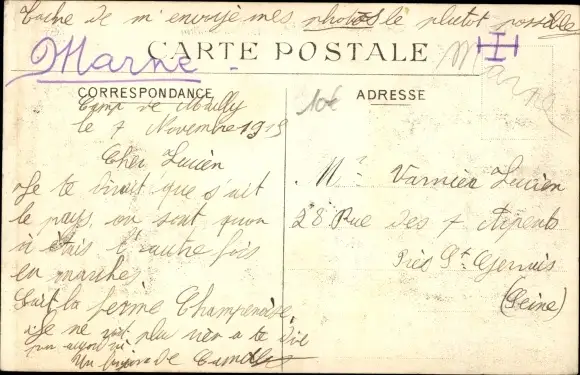 Tache de m'envoyé mes photos le plutot possible
Marne
CARTE POSTALE
Marne
CORRESPONDANCE
ADRESSE
10€
Camp de Mailly
le 7 Novembre 1915
Cher Lucien
Je te dirait que s'ait
le pays, on sont quon
n étais l'autre fois
en marches
Cart la ferme Champenoise
Je ne voit plu rien a te dire
pour aujourd'hui
Un de Camille
Mr Varnier Lucien
28 Rue des 7 Arpents
Près St. Gervais
(Seine)